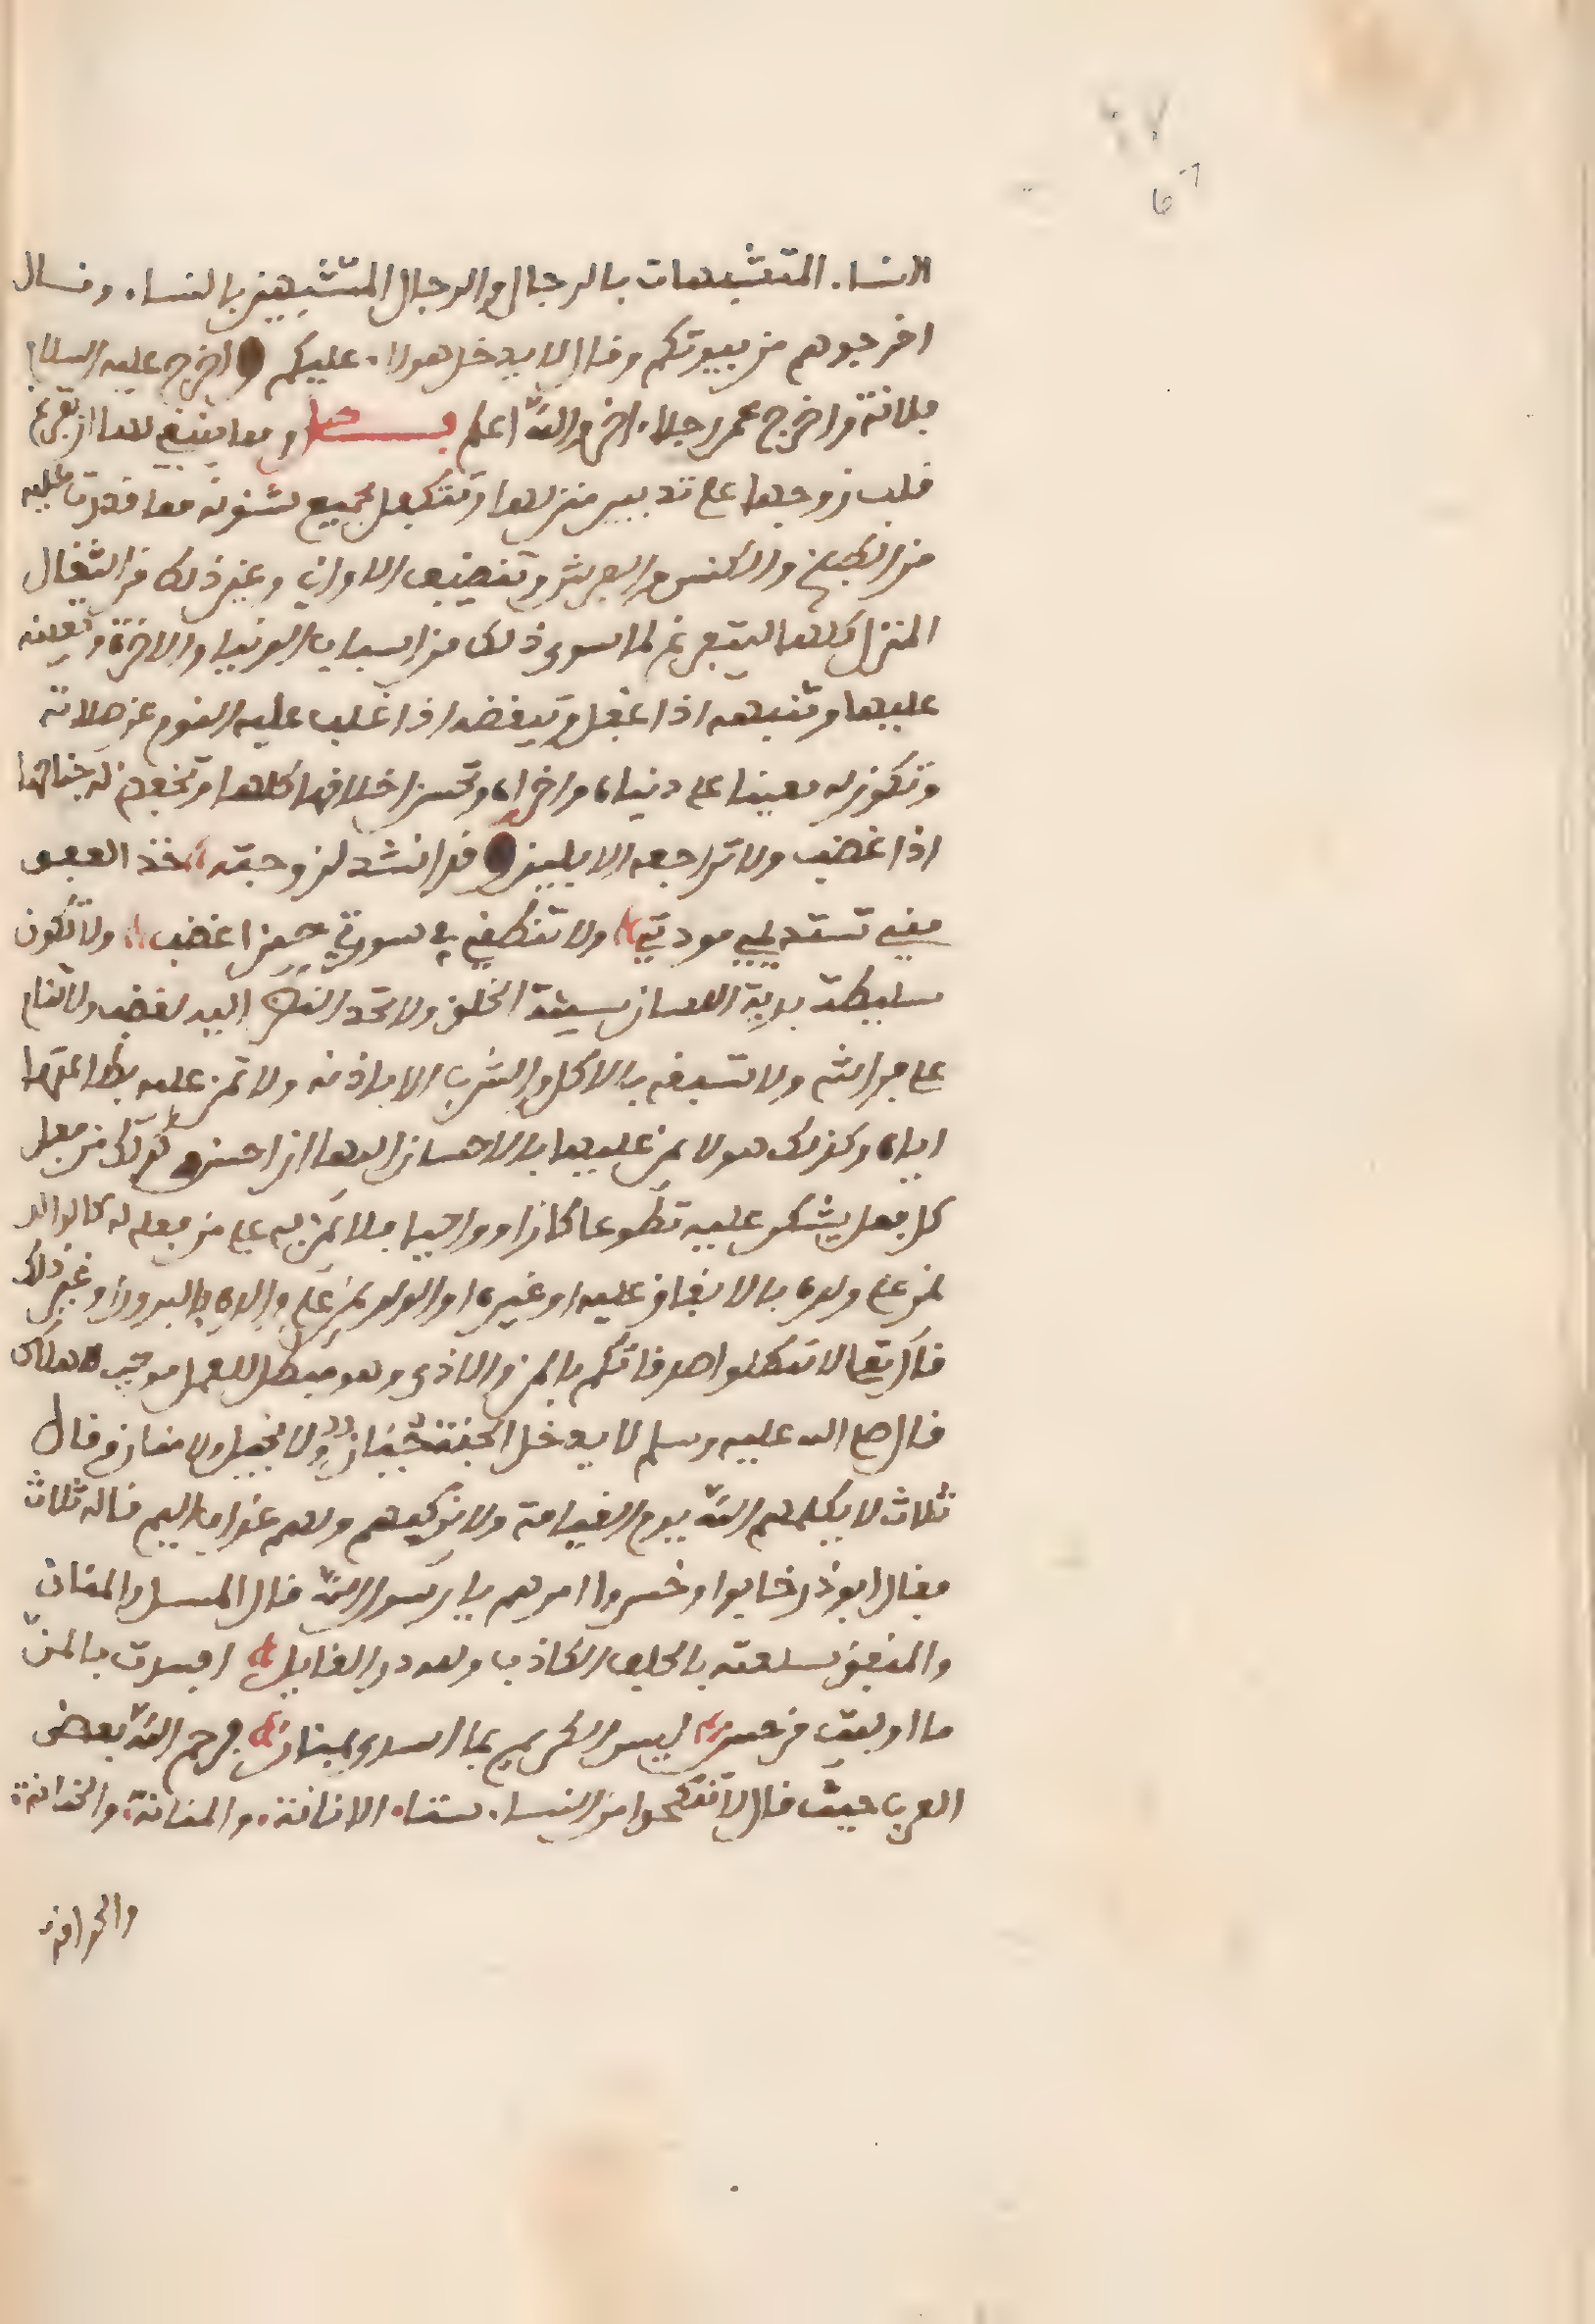 ٦٧
67
النساء المتشبهات بالرجال والرجال المتشبهين بالنساء وقال
اخرجوهم من بيوتكم وقال لا يدخل هولاء عليكم واخرج عليه السلام
فلانة واخرج عمر رجلا اخر والله اعلم فصل ومما ينبغي لها ان تفرغ
قلب زوجها على تدبير منزلها وتتكفل بجميع شئونه مما قدرت عليه
من الطبخ والكنس والفرش وتنضيف الاواني وغير ذلك من اشغال
المنزل كلها ليتفرغ لما سوى ذلك من اسباب الدنيا والاخرة وتعينه
عليها وتنبهه اذا غفل وتيقضه اذا غلب عليه النوم عن صلاته
وتكون له معينا على دنياه واخراه وتحسن اخلاقها كلها وتخفض له جناحها
اذا غضب ولا تراجعه الا بلين وقد انشد لزوجته خذ العفو
مني تستديمي مودتي ولا تنطقي في سورتي حين اغضب ولا تكون
سليطة بدية اللسان سيئة الخلق ولا تحد النظر اليه لغضب ولا تنام
على فراشه ولا تسبقه بالاكل والشرب الا باذنه ولا تمن عليه بطاعتها
اياه وكذلك هو لا يمن عليها بالاحسان اليها ان احسن وكذلك من فعل
كل فعل يشكر عليه تطوعا كان او واجبا فلا يمن به على من فعله له كالوالد
يمن على ولده بالانفاق عليه او غيره او الولد يمن على والده بالبرور او غير ذلك
قال تعالى لا تبطلوا صدقاتكم بالمن والاذى وهو مبطل للعمل موجب للهلاك
قال صلى الله عليه وسلم لا يدخل الجنة ولا بخيل ولا منان وقال
ثلاث لا يكلمهم الله يوم القيامة ولا يزكيهم ولهم عذاب اليم قاله ثلاث
فقال ابو ذر خابوا وخسروا امرهم يا رسول الله قال المسبل والمنان
والمنفق سلعته بالحلف الكاذب ولله در القايل افسدت بالمن
ما اوليت من حسن ليس الكريم بما اسدى بمنان فرحم الله بعض
العرب حيث قال لا تنكحوا من النساء ستا الانانة والمنانة والحنانة
والحداقة